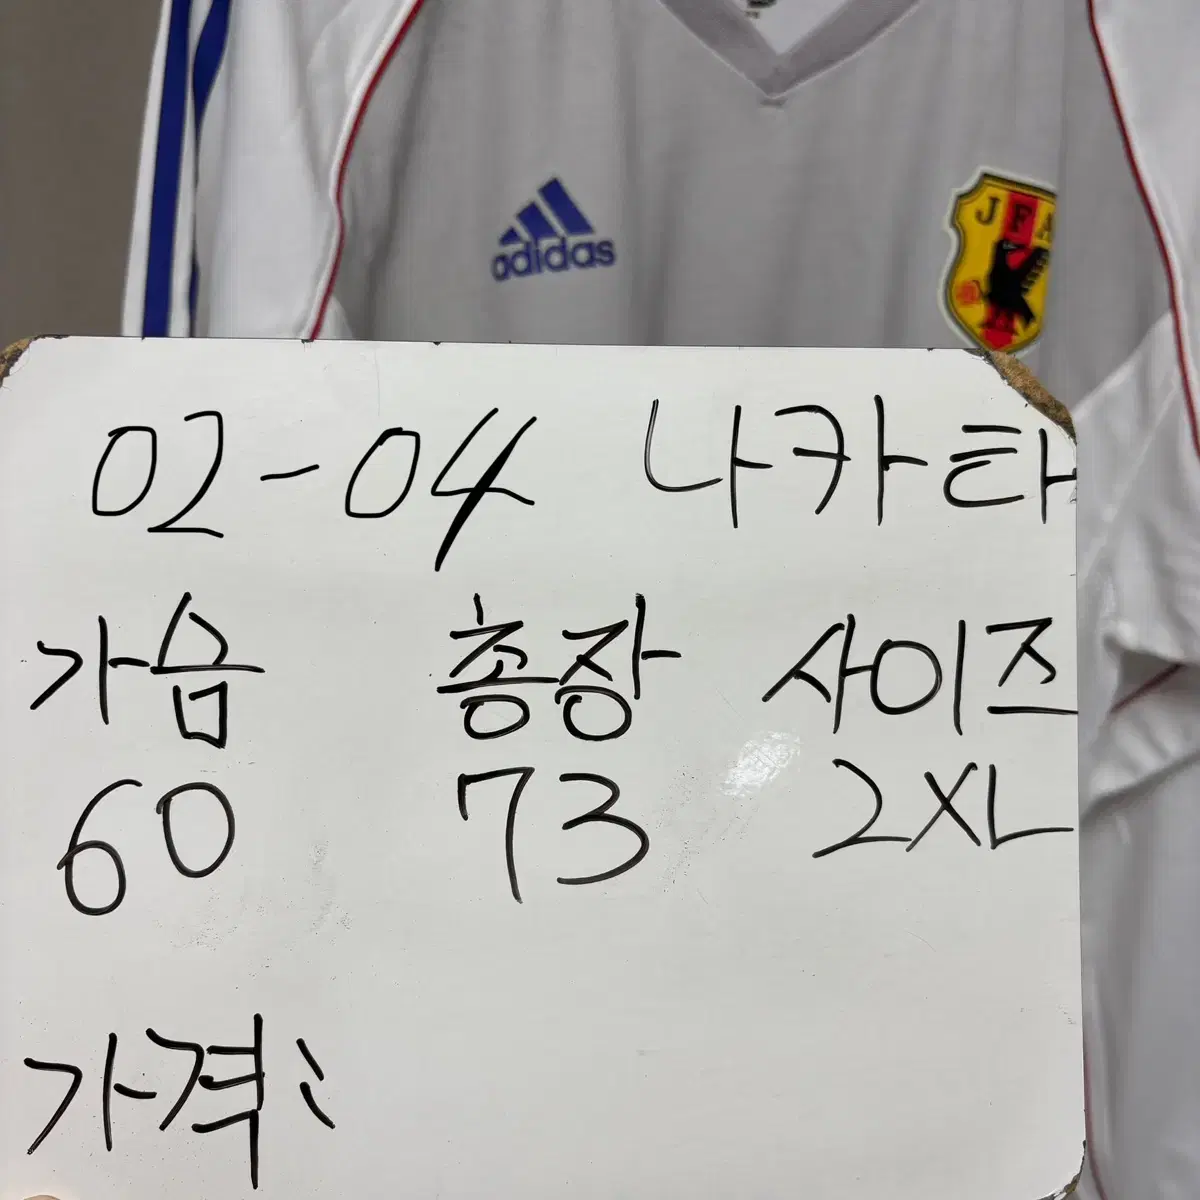 adidas
JFA
02-04 나카타
가슴 총장 사이즈
60 73 2XL
가격: